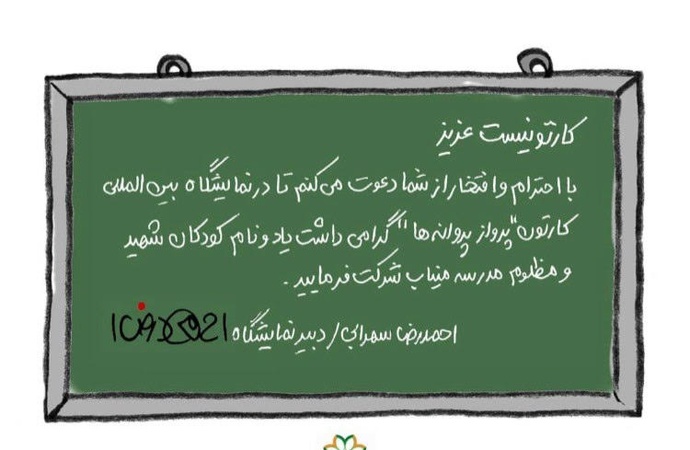 کارتونیست عزیز
با احترام و افتخار از شما دعوت می‌کنم تا در نمایشگاه بین المللی
کارتون "پرواز پروانه‌ها" گرامی داشت یاد و نام کودکان شهید
و مظلوم مدرسه میناب شرکت فرمایید.
احمدرضا سهرابی / دبیر نمایشگاه